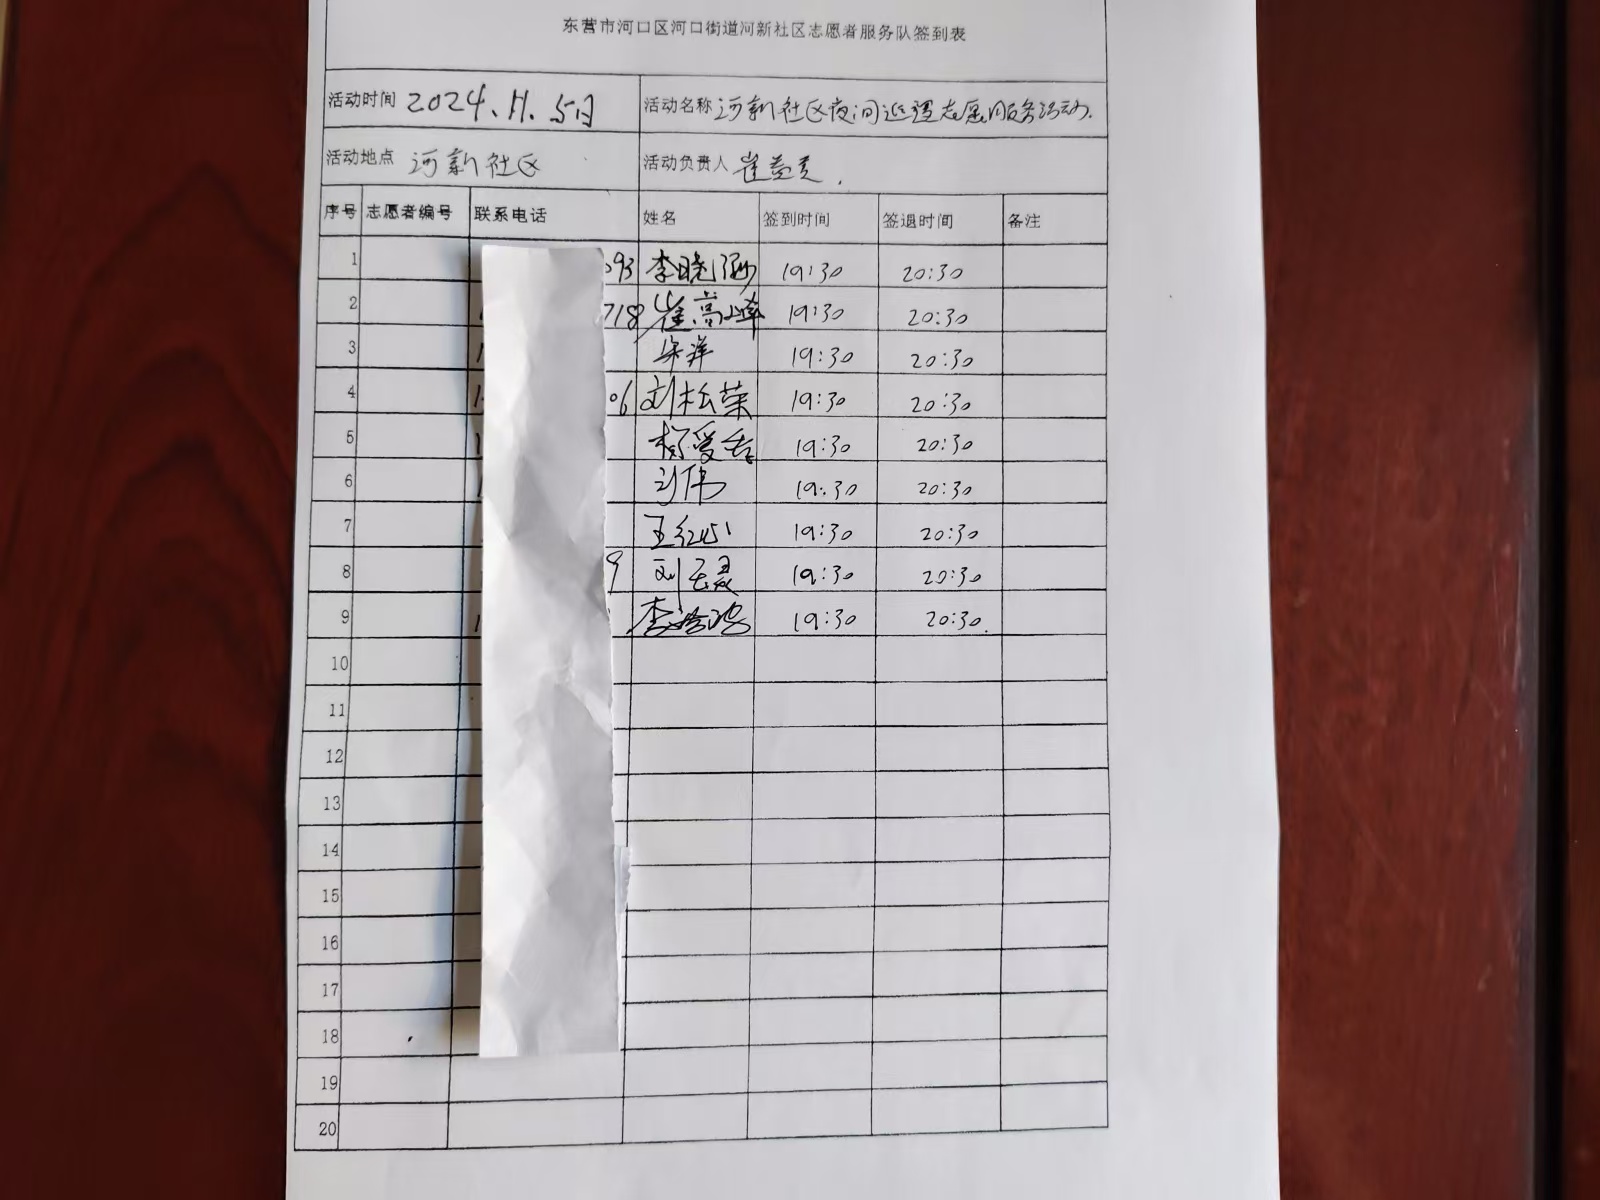 东营市河口区河口街道河新社区志愿者服务队签到表
活动时间 2024.11.5日 活动名称 河新社区夜间巡逻志愿服务活动.
活动地点 河新社区 活动负责人 崔
序号 志愿者编号 联系电话 姓名 签到时间 签退时间 备注
1 093 李晓 19:30 20:30
2 718 崔高峰 19:30 20:30
3 19:30 20:30
4 06 刘松荣 19:30 20:30
5 杨爱 19:30 20:30
6 刘伟 19:30 20:30
7 王红 19:30 20:30
8 9 刘 19:30 20:30
9 李 19:30 20:30.
10
11
12
13
14
15
16
17
18
19
20